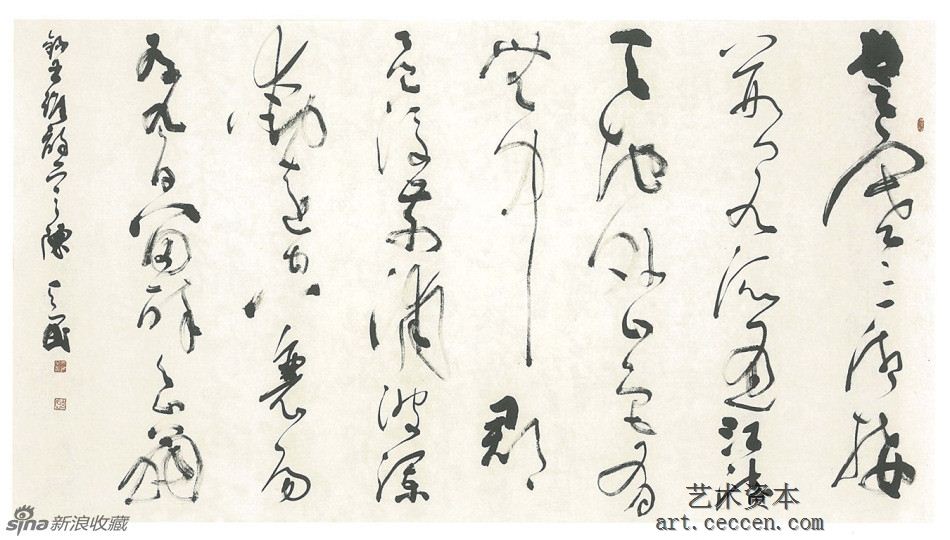 楚塞三湘接
荆門九派通江流
天地外山色有
無中郡
邑浮前浦波瀾
動遠空襄陽
好風日留醉與山翁
王維詩
艺术资本
art.ceccen.com
sina新浪收藏